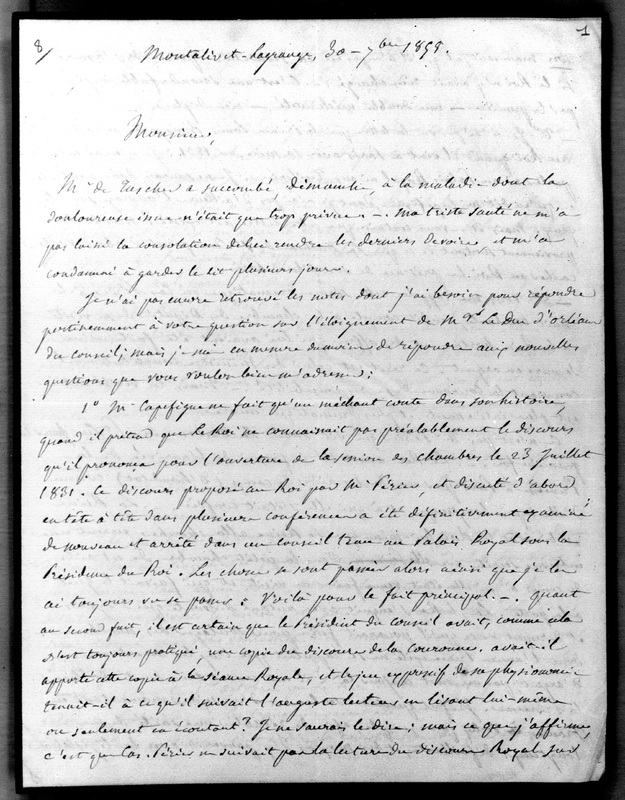 8/
1
Montalivet-Lagrange, 30 - 7bre 1858.
Monsieur,
Mr de Tascher a succombé, dimanche, à la maladie dont la
douloureuse issue n'était que trop prévue -. ma triste santé ne m'a
pas laissé la consolation de lui rendre les derniers devoirs, et m'a
condamné à garder le lit plusieurs jours.
Je n'ai pas encore retrouvé les notes dont j'ai besoin pour répondre
pertinemment à votre question sur l'éloignement de Mgr Le Duc d'orléans
du conseil; mais je suis en mesure de répondre aux nouvelles
questions que vous voulez bien m'adresser;
1o Mr Capefigue ne fait qu'un méchant conte dans son histoire,
quand il prétend que Le Roi ne connaissait pas préalablement le discours
qu'il prononça pour l'ouverture de la session des chambres le 23 Juillet
1831. Ce discours proposé au Roi par Mr Périer, et discuté d'abord
en tête à tête dans plusieurs conférences a été définitivement examiné
de nouveau et arrêté dans un conseil tenu au Palais Royal sous la
Présidence du Roi. Les choses se sont passées alors ainsi que je les
ai toujours vu se passer: Voilà pour le fait principal. -. quant
au second fait, il est certain que le Président du Conseil avait, comme cela
s'est toujours pratiqué, une copie du discours de la Couronne. avait-il
apporté cette copie à la séance Royale, et le jeu expressif de sa physionomie
tenait-il à ce qu'il suivait l'auguste lecteur en lisant lui-même
ou seulement en écoutant? Je ne saurais le dire; mais ce que j'affirme,
c'est que Cas. Périer ne suivait pas la lecture du discours Royal sur